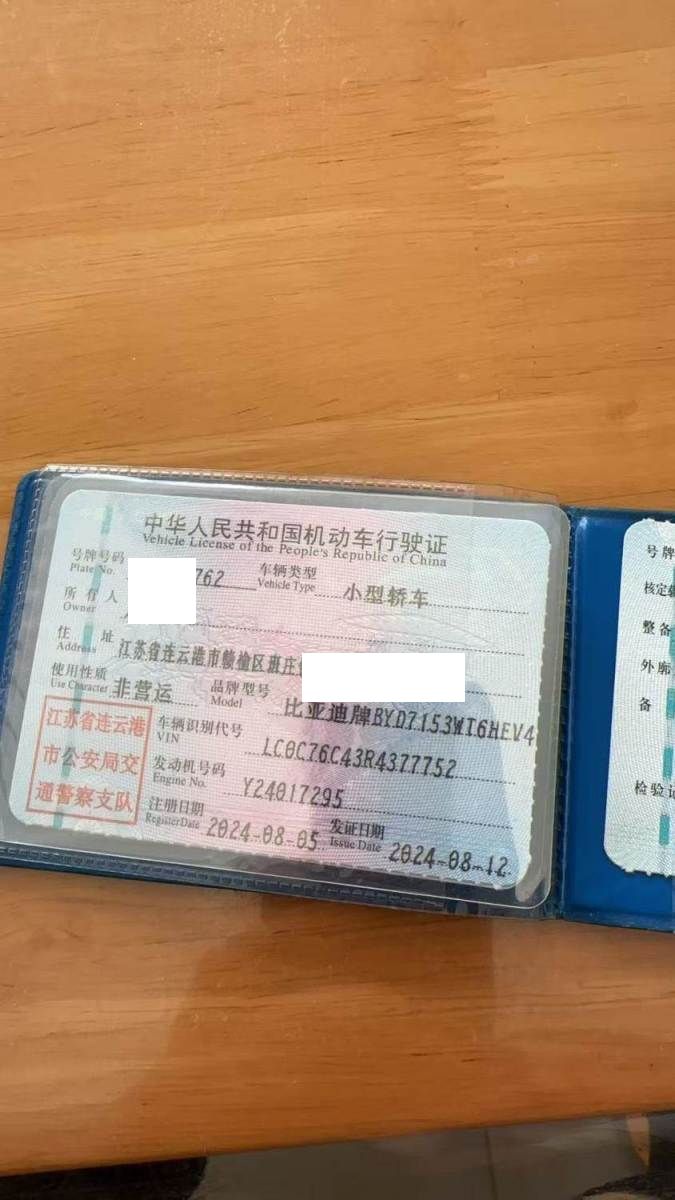 中华人民共和国机动车行驶证
Vehicle License of the People's Republic of China
号牌号码 762 车辆类型 小型轿车
Plate No. Vehicle Type
所有人
Owner
住址 江苏省连云港市赣榆区班庄
Address
使用性质 非营运 品牌型号 比亚迪牌BYD7153WT6HEV4
Use Character Model
江苏省连云港
市公安局交
通警察支队
车辆识别代号 LC0C76C43R4377752
VIN
发动机号码 Y24017295
Engine No.
注册日期 2024-08-05 发证日期 2024-08-12
Register Date Issue Date
号牌
核定
整备
外廓
备
检验记